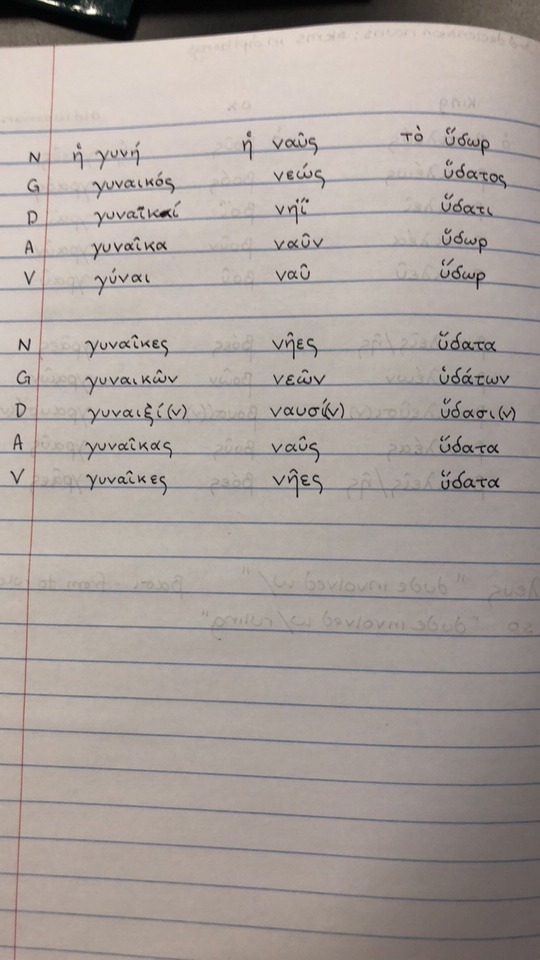 N ἡ γυνή ἡ ναῦς τὸ ὕδωρ
G γυναικός νεώς ὕδατος
D γυναικί νηΐ ὕδατι
A γυναῖκα ναῦν ὕδωρ
V γύναι ναῦ ὕδωρ
N γυναῖκες νῆες ὕδατα
G γυναικῶν νεῶν ὑδάτων
D γυναιξί(ν) ναυσί(ν) ὕδασι(ν)
A γυναῖκας ναῦς ὕδατα
V γυναῖκες νῆες ὕδατα